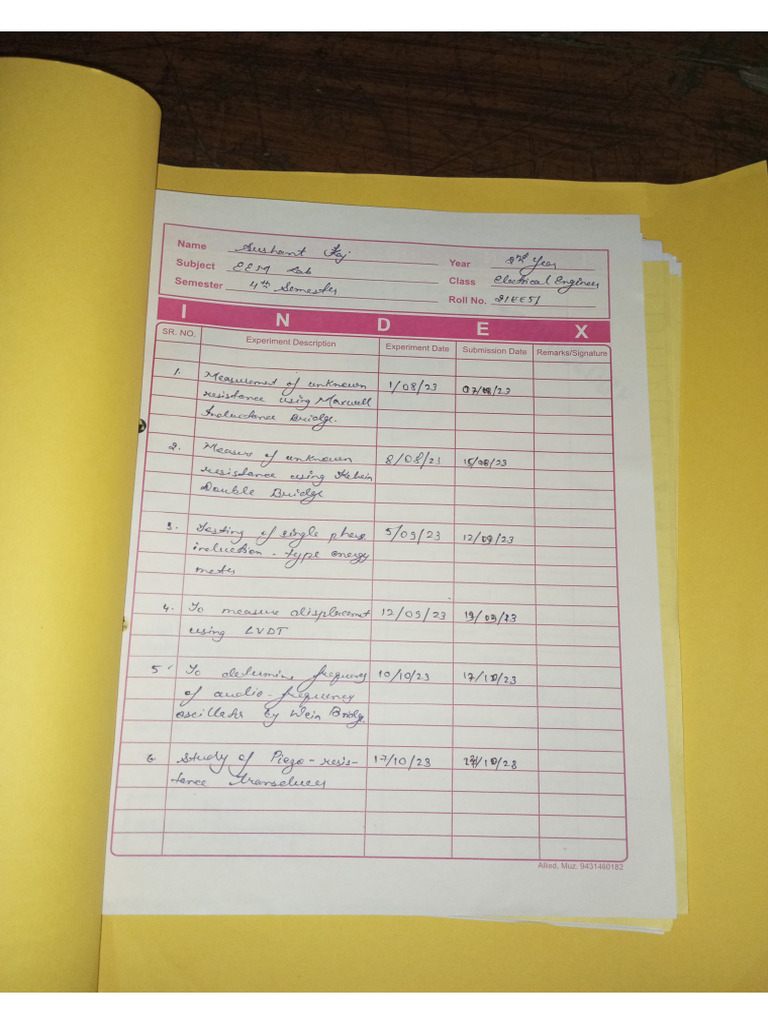 Name Sushant Raj
Year 2nd Year
Subject EEM Lab
Class Electrical Engineer
Semester 4th Semester
Roll No. 21EE51
INDEX
SR. NO. Experiment Description Experiment Date Submission Date Remarks/Signature
1. Measurement of unknown 1/08/23 07/08/23
resistance using Maxwell
Inductance Bridge.
2. Measure of unknown 8/08/23 15/08/23
resistance using Kelvin
Double Bridge
3. Testing of single phase 5/09/23 12/09/23
induction - type energy
meter
4. To measure displacement 12/09/23 19/09/23
using LVDT
5. To determine frequency 10/10/23 17/10/23
of audio - frequency
oscillator by Wein Bridge
6. Study of Piezo - resis- 17/10/23 /10/23
tance transducer
Allied, Muz. 9431460182